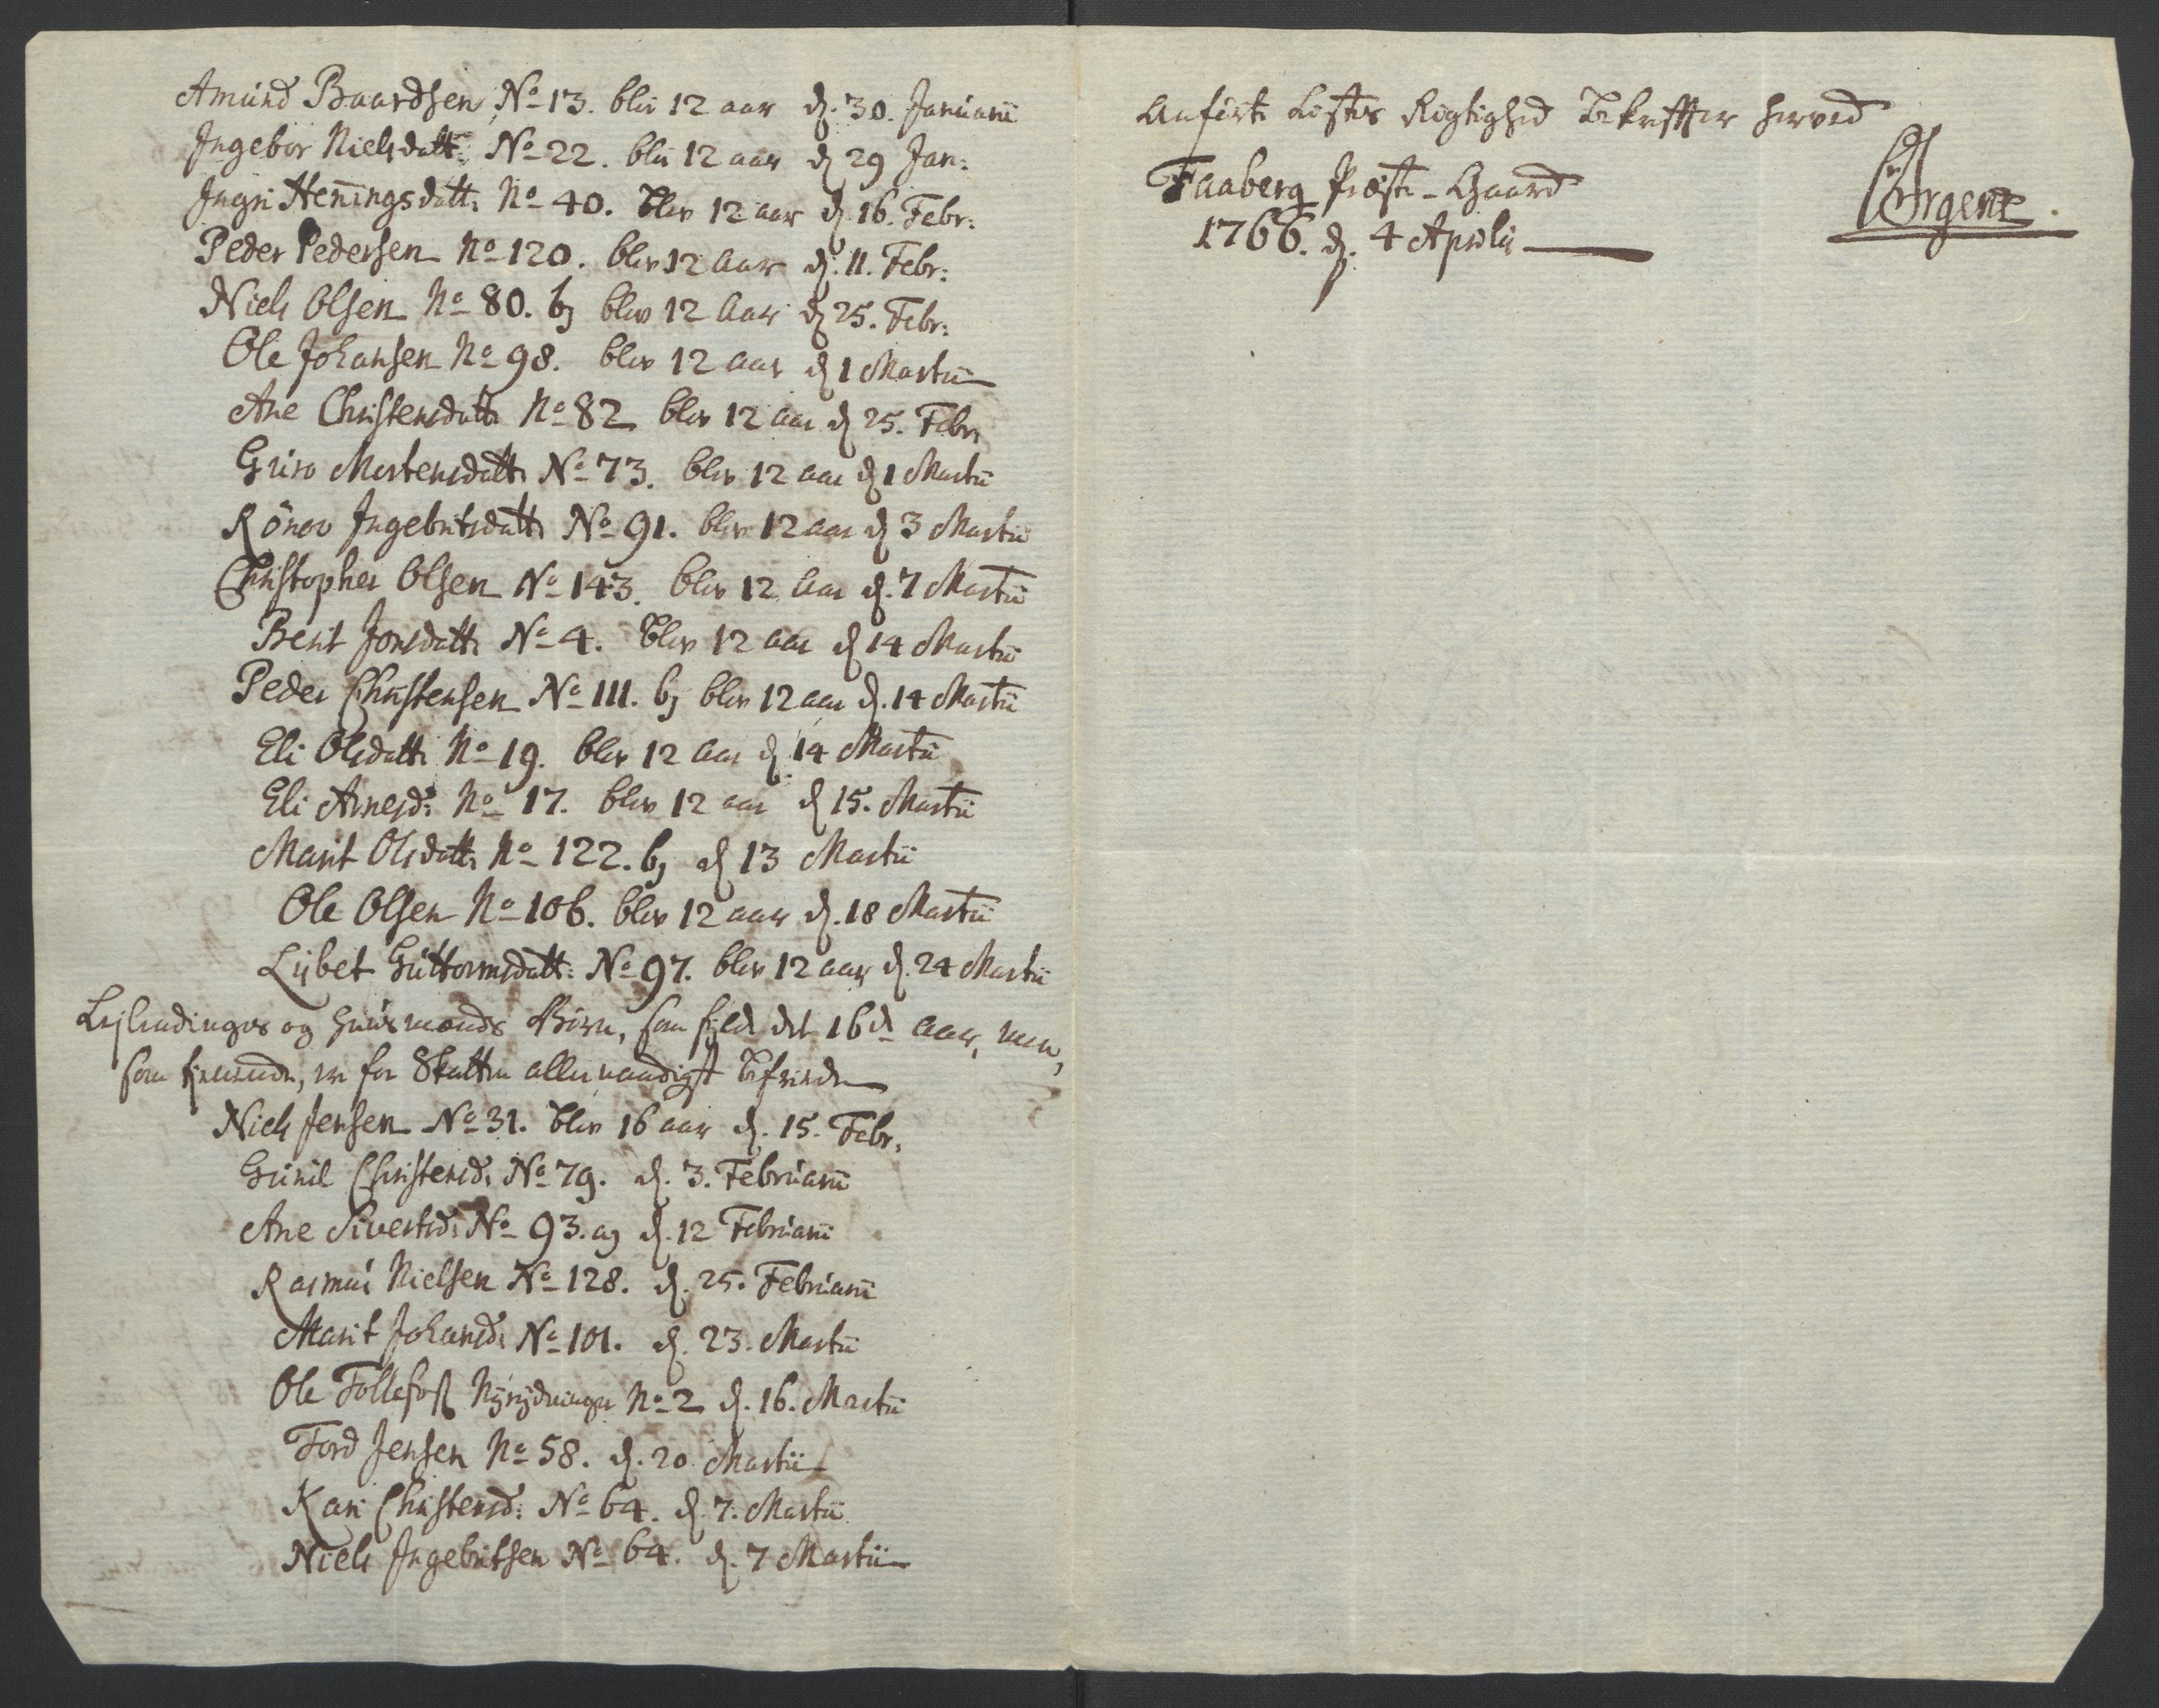 Amund Baardsen No 13. blev 12 aar d. 30. Januarii
Ingebor Nielsdatt: No 22. blev 12 aar d. 29 Jan:
Ingri Henningsdatt: No 40. blev 12 aar d. 16. Febr:
Peder Pedersen No 120. blev 12 Aar d. 11. Febr:
Niels Olsen No 80. b) blev 12 Aar d. 25. Febr:
Ole Johansen No 98. blev 12 aar d. 1 Martii
Ane Christensdatt: No 82 blev 12 aar d. 25. Febr:
Guro Mortensdatt: No 73. blev 12 aar d. 1 Martii
Rönov Ingebritsdatt: No 91. blev 12 aar d. 3 Martii
Christopher Olsen No 143. blev 12 Aar d. 7 Martii
Berit Jonsdatt: No 4. blev 12 aar d. 14 Martii
Peder Christensen No 111. b) blev 12 aar d. 14 Martii
Eli Olsdatt: No 19. blev 12 Aar d. 14 Martii
Eli Arnesd: No 17. blev 12 aar d. 15. Martii
Marit Olsdatt: No 122. b) d. 13 Martii
Ole Olsen No 106. blev 12 aar d. 18 Martii
Lisbet Guttormsdatt: No 97. blev 12 aar d. 24 Martii
Lejlendinger og Huusmænds Börn, som fyldte det 16de Aar, men,
som tienende, er for Skatten allernaadigst befriede
Niels Jensen No 31. blev 16 aar d. 15. Febr.
Gunil Christensd: No 79. d. 3. Februarii
Ane Sivertsd: No 93. a) d. 12 Februarii
Rasmus Nielsen No 128. d. 25. Februarii
Marit Johansd: No 101. d. 23. Martii
Ole Follefoss Nyrydninger No 2 d. 16. Martii
Tord Jensen No 58. d. 20. Martii
Kari Christensd: No 64. d. 7. Martii
Niels Ingebritsen No 64. d. 7 Martii
Anförte Listes Rigtighed Bekræffter herved
Faaberg Præste-Gaard
1766. d. 4 Aprilis
Ørgens.